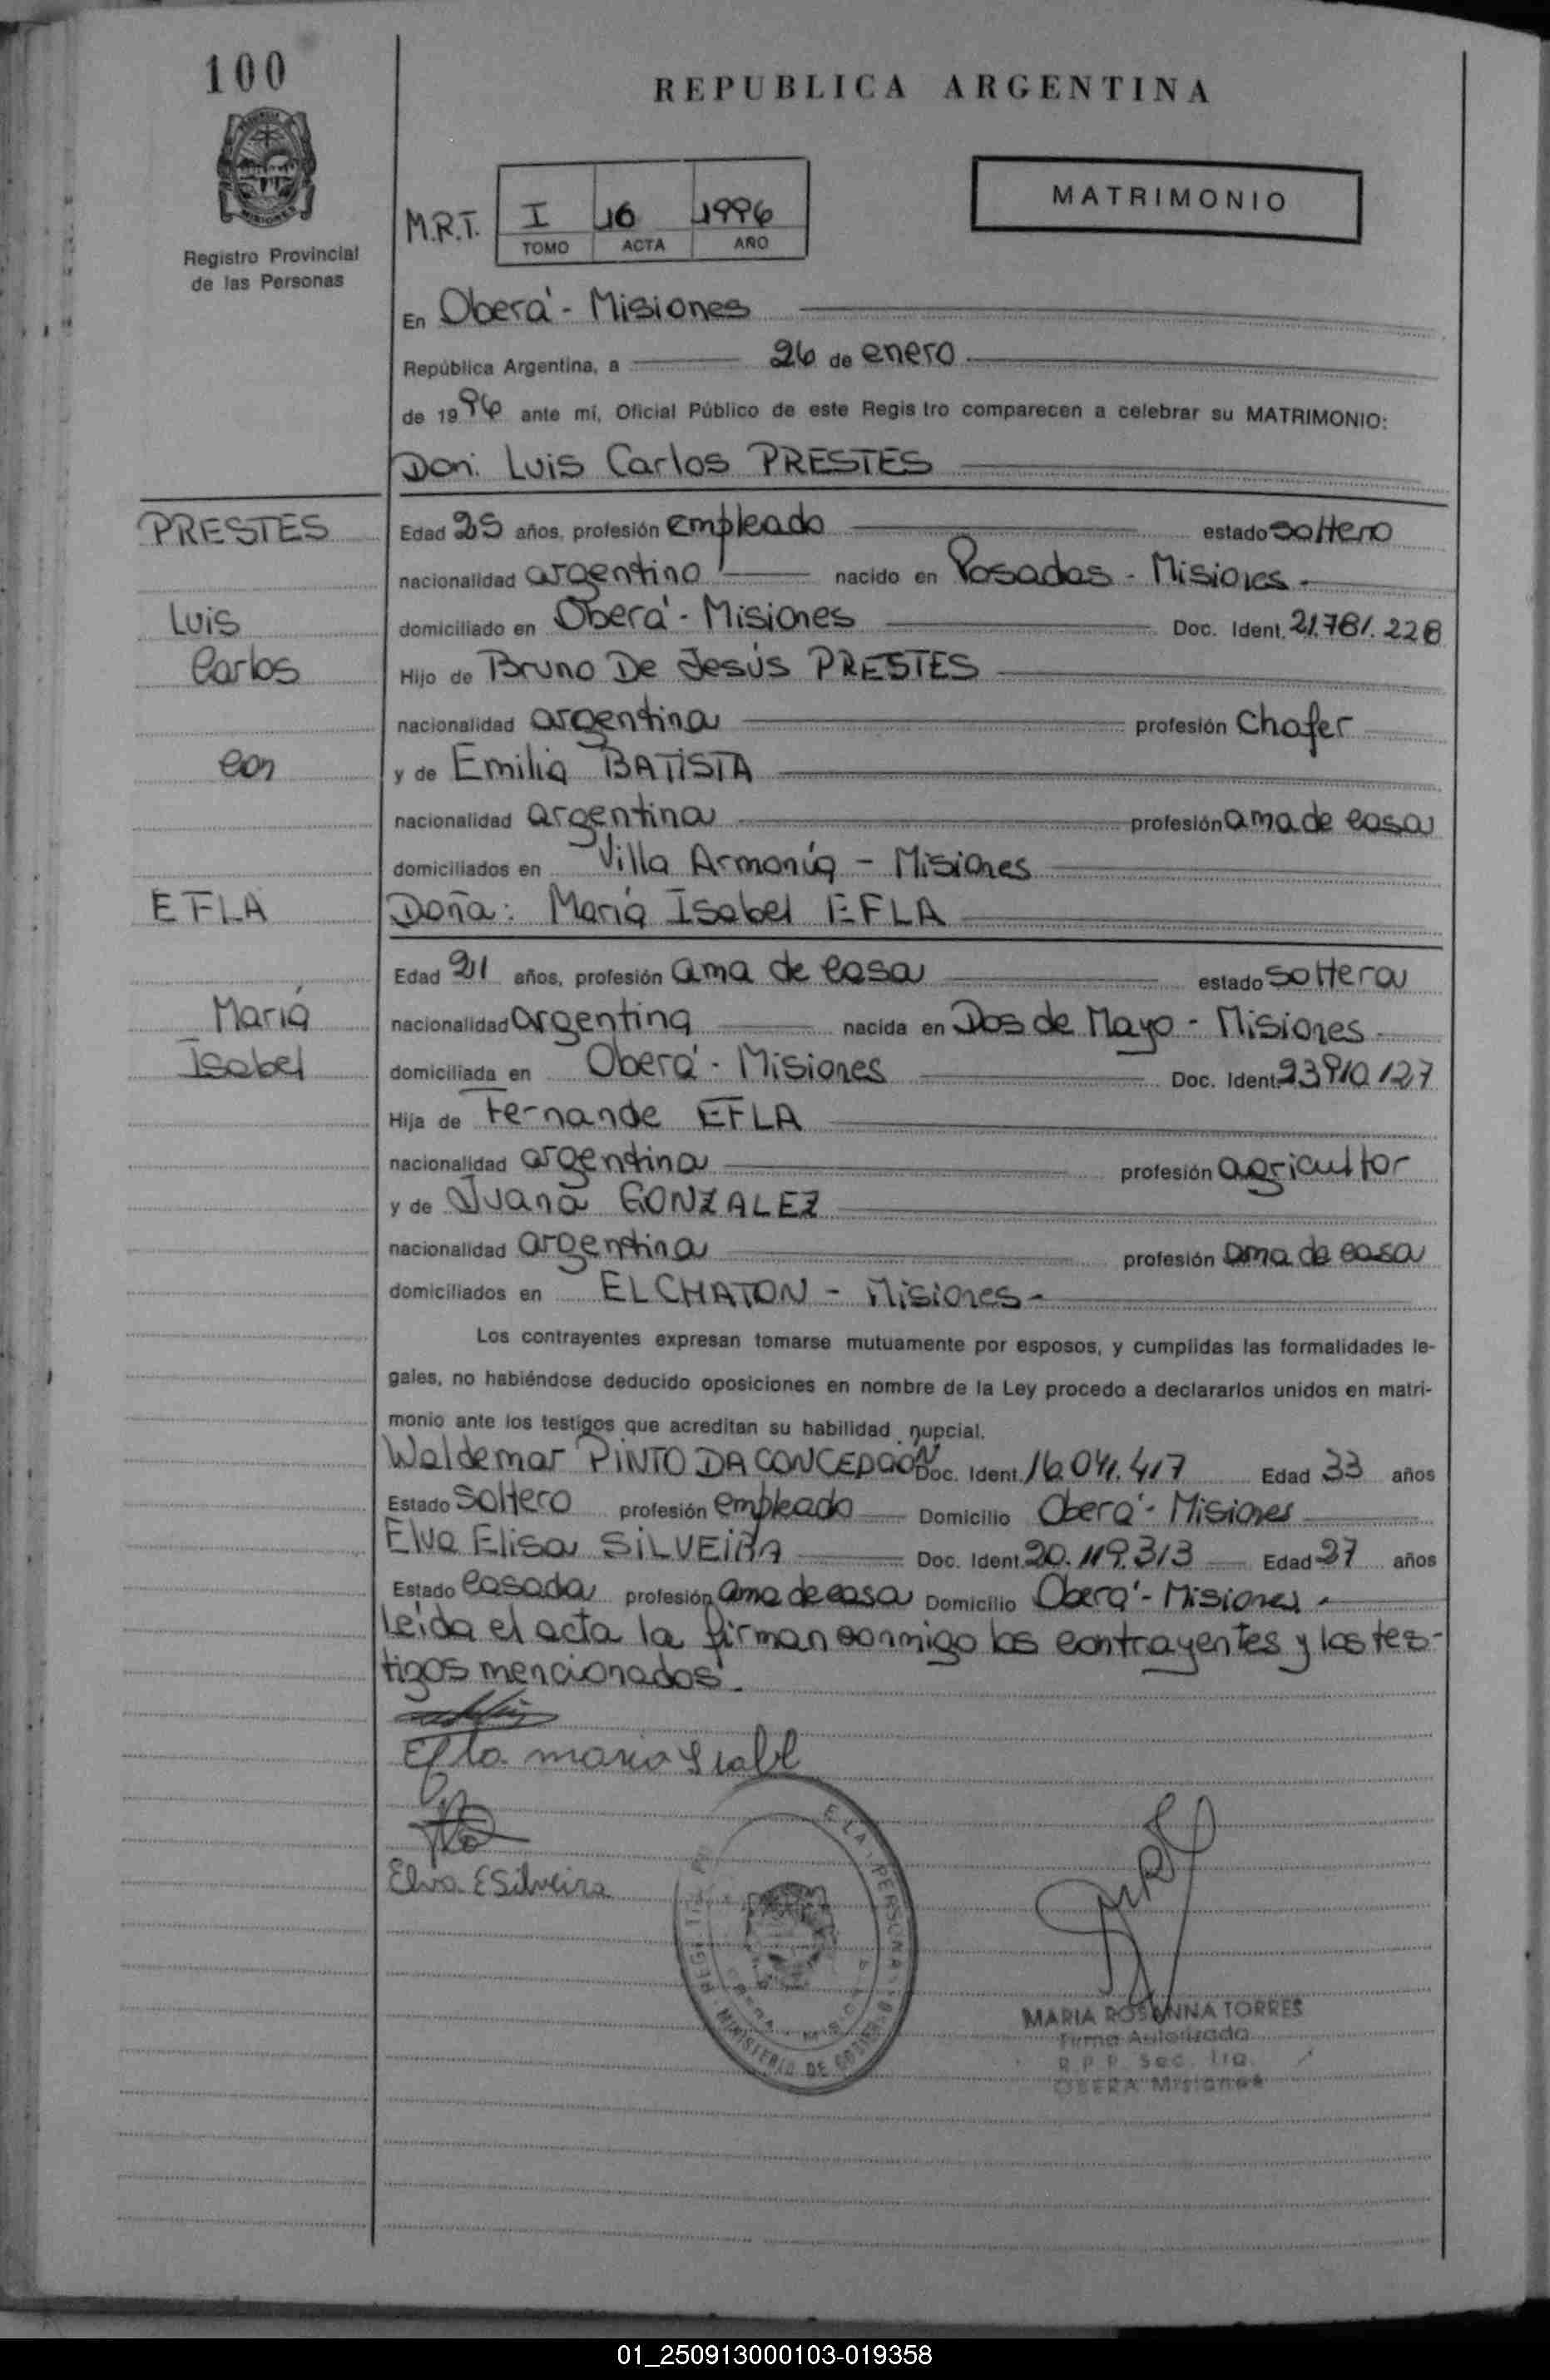 100
REPUBLICA ARGENTINA
MISIONES
Registro Provincial
de las Personas
MATRIMONIO
M.R.T. I 16 1996
TOMO ACTA AÑO
En Oberá - Misiones
República Argentina, a 26 de enero
de 1996 ante mí, Oficial Público de este Regis tro comparecen a celebrar su MATRIMONIO:
Don: Luis Carlos PRESTES
PRESTES
Edad 25 años, profesión empleado estado soltero
nacionalidad argentino nacido en Posadas - Misiones -
Luis
domiciliado en Oberá - Misiones Doc. Ident. 21.781.228
Carlos
Hijo de Bruno De Jesús PRESTES
nacionalidad argentina profesión Chofer
con
y de Emilia BATISTA
nacionalidad argentina profesión ama de casa
domiciliados en Villa Armonía - Misiones
EFLA
Doña: María Isabel EFLA
Edad 21 años, profesión ama de casa estado soltera
María
nacionalidad argentina nacida en Dos de Mayo - Misiones -
Isabel
domiciliada en Oberá - Misiones Doc. Ident. 23910127
Hija de Fernande EFLA
nacionalidad argentina profesión agricultor
y de Juana GONZALEZ
nacionalidad argentina profesión ama de casa
domiciliados en EL CHATON - Misiones -
Los contrayentes expresan tomarse mutuamente por esposos, y cumplidas las formalidades le-
gales, no habiéndose deducido oposiciones en nombre de la Ley procedo a declararlos unidos en matri-
monio ante los testigos que acreditan su habilidad nupcial.
Waldemar PINTO DA CONCEPCION Doc. Ident. 16.041.417 Edad 33 años
Estado soltero profesión empleado Domicilio Oberá - Misiones
Elva Elisa SILVEIRA Doc. Ident. 20.119.313 Edad 27 años
Estado casada profesión ama de casa Domicilio Oberá - Misiones -
Leída el acta la firman conmigo los contrayentes y los tes-
tigos mencionados.
Efla maria Isabel
Elva E Silveira
MINISTERIO DE
MARIA ROSANNA TORRES
Firma Autorizada
R.P.P. Sec. 1ra.
OBERA Misiones
01_250913000103-019358